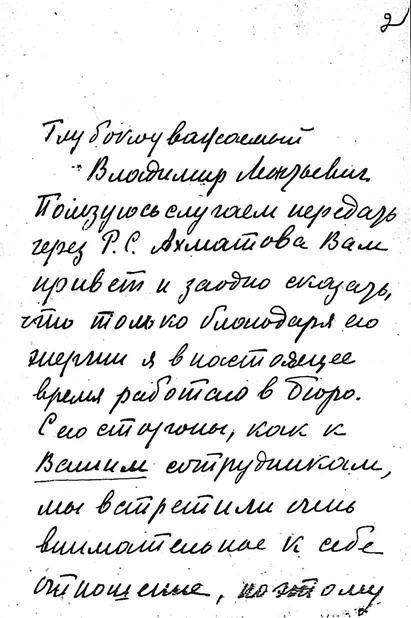 2
Глубокоуважаемый
Владимир Леонтьевич.
Пользуюсь случаем передать
через Р.С. Ахматова Вам
привет и заодно сказать,
что только благодаря его
энергии я в настоящее
время работаю в бюро.
С его стороны, как к
Вашим сотрудникам,
мы встретили очень
внимательное к себе
отношение, поэтому